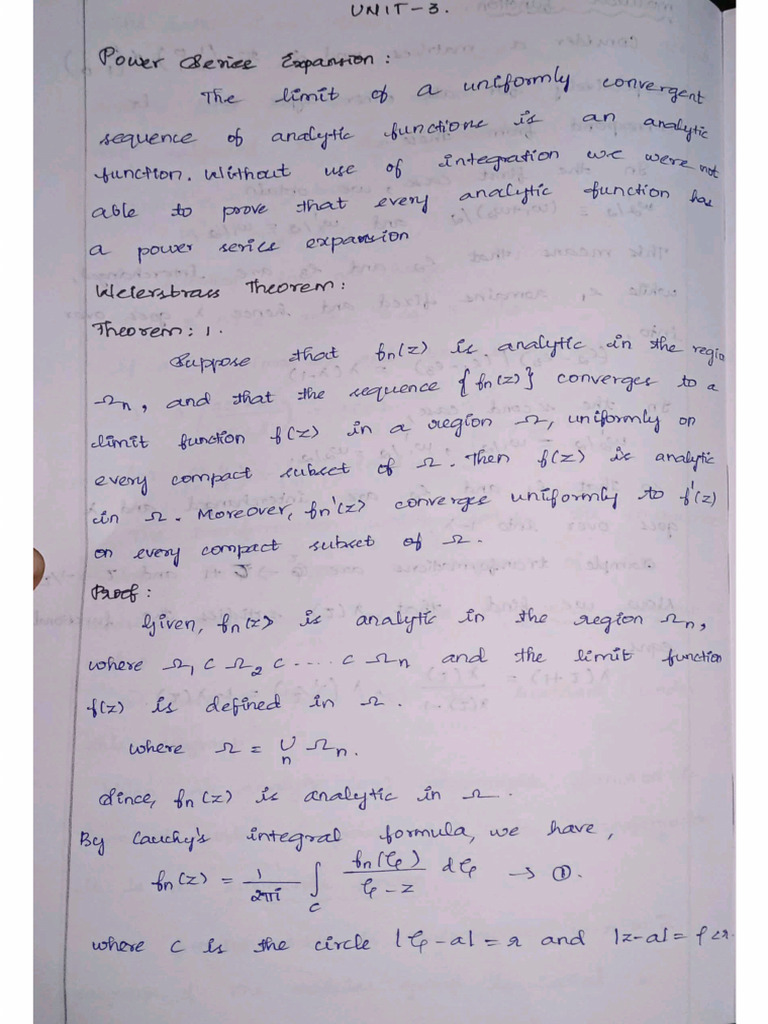 UNIT-3.
Power Series Expansion:
The limit of a uniformly convergent
sequence of analytic functions is an analytic
function. Without use of integration we were not
able to prove that every analytic function has
a power series expansion
Weierstrass Theorem:
Theorem: 1.
Suppose that fn(z) is analytic in the regio
Ωn, and that the sequence {fn(z)} converges to a
limit function f(z) in a region Ω, uniformly on
every compact subset of Ω. Then f(z) is analytic
in Ω. Moreover, fn'(z) converges uniformly to f'(z)
on every compact subset of Ω.
Proof:
Given, fn(z) is analytic in the region Ωn,
where Ω1 ⊂ Ω2 ⊂ .... ⊂ Ωn and the limit function
f(z) is defined in Ω.
where Ω = ∪n Ωn.
Since, fn(z) is analytic in Ω.
By Cauchy's integral formula, we have,
fn(z) = 1/2πi ∫C fn(ζ)/ζ-z dζ → ①.
where C is the circle |ζ-a| = r and |z-a| = ρ<r.